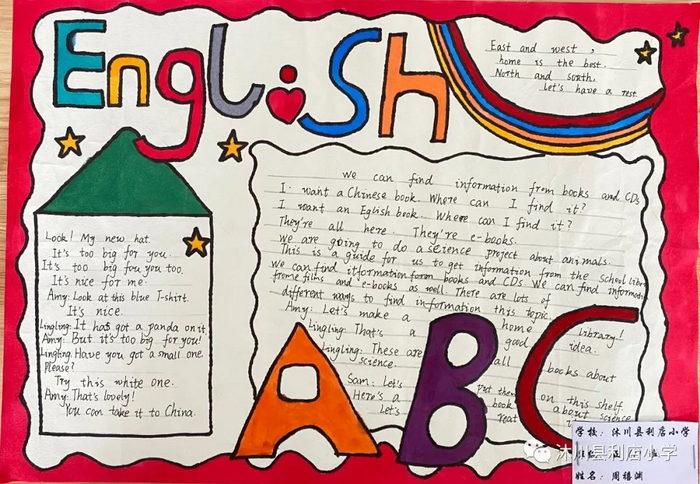 English
East and west,
home is the best.
North and south.
Let's have a rest.
Look! My new hat.
It's too big for you.
It's too big fou you too.
It's nice for me.
Amy: Look at this blue T-shirt.
It's nice.
Lingling: It has got a panda on it
Amy: But it's too big for you!
Lingling: Have you got a small one
Please?
Try this white one.
Amy: That's lovely!
You can take it to China.
we can find information from books and CDs
I want a Chinese book. Where can I find it?
I want an Eglish book. Where can I find it?
They're all here. They're e-books.
we are going to do a science project about animals.
This is a guide for us to get information from the School
we can find itformation form books and CDs We can find
frome films and e-books as well. There are lots of
different ways to find information this topic.
Amy: Let's make a home library!
Lingling: That's a good idea.
Lingling: These are all books about
science.
Sam: Let's put them on this shelf
Here's a book about science
Let's
ABC
学校：沐川县利店小学
姓名：周禧渊
沐川县利店小学